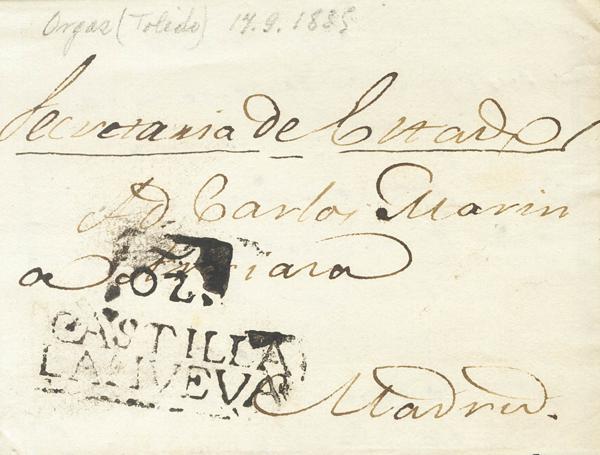 Orgaz (Toledo) 17.9.1835
Secretaria de Estado
A d. Carlos Marin
a
OZ.
CASTILLA
LA NUEVA
Madrid.